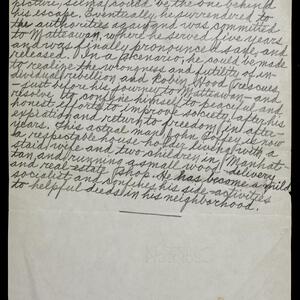 picture, Selma) could be the one behind
his escape. Eventually he surrendered to
the authorities again and was committed
to Matteawan, where he served five years
and was finally pronounced safe and
released. In a scenario, he could be made
to realize the wrongness and futility of in-
dividual rebellion and Robin Hood rescues,
— just before his journey to Matteawan — and
resolve to confine himself to peaceful and
honest efforts to improve society, after his
expiation and return to freedom, in after-
years. This actual man,
a respectable house-holder living with a
staid wife and two children in Manhat-
tan, and running a small wood-delivery
and real-estate shop. He has become a mild
socialist and confines his side-activities
to helpful deeds in his neighborhood.